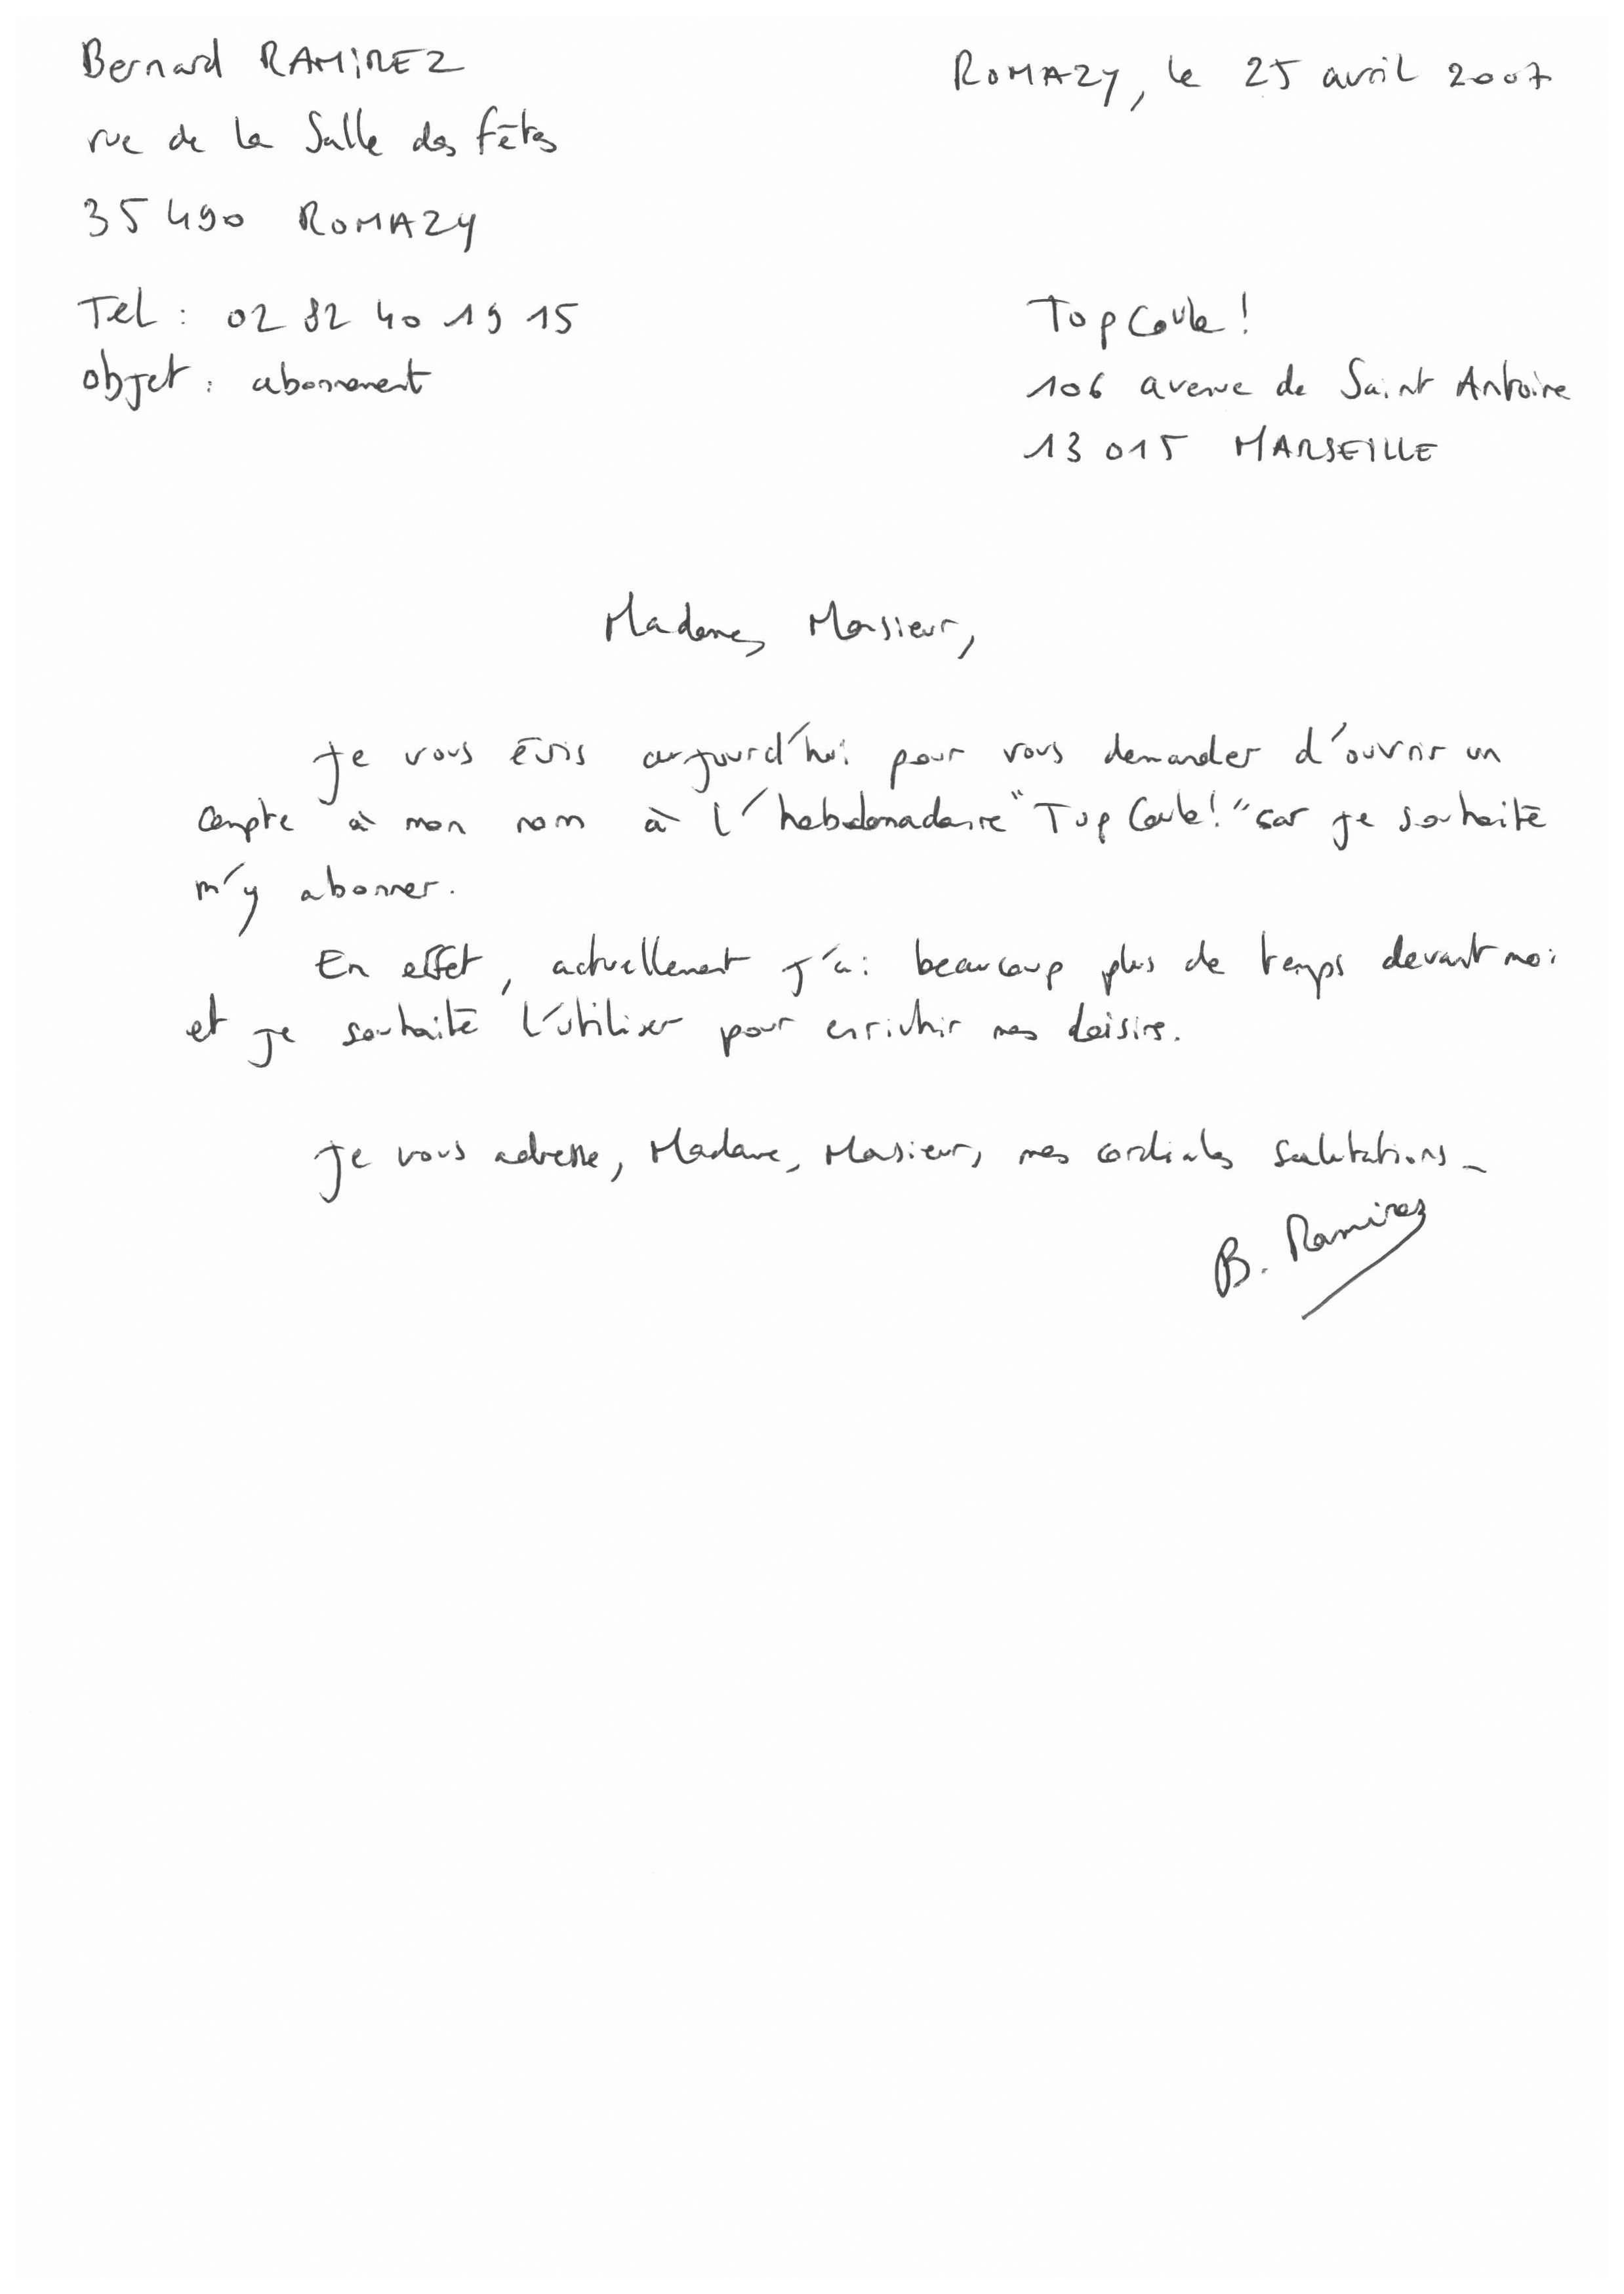 Bernard RAMIREZ
rue de la Salle des fêtes
35490 ROMAZY
Tel : 02 82 40 19 15
objet : abonnement
ROMAZY, le 25 avril 2007
Top Coule !
106 avenue de Saint Antoine
13 015 MARSEILLE
Madame, Monsieur,
Je vous écris aujourd'hui pour vous demander d'ouvrir un
compte à mon nom à l'hebdomadaire "Top Coule !" car je souhaite
m'y abonner.
En effet, actuellement j'ai beaucoup plus de temps devant moi
et je souhaite l'utiliser pour enrichir mes loisirs.
Je vous adresse, Madame, Monsieur, mes cordiales salutations_
B. Ramirez